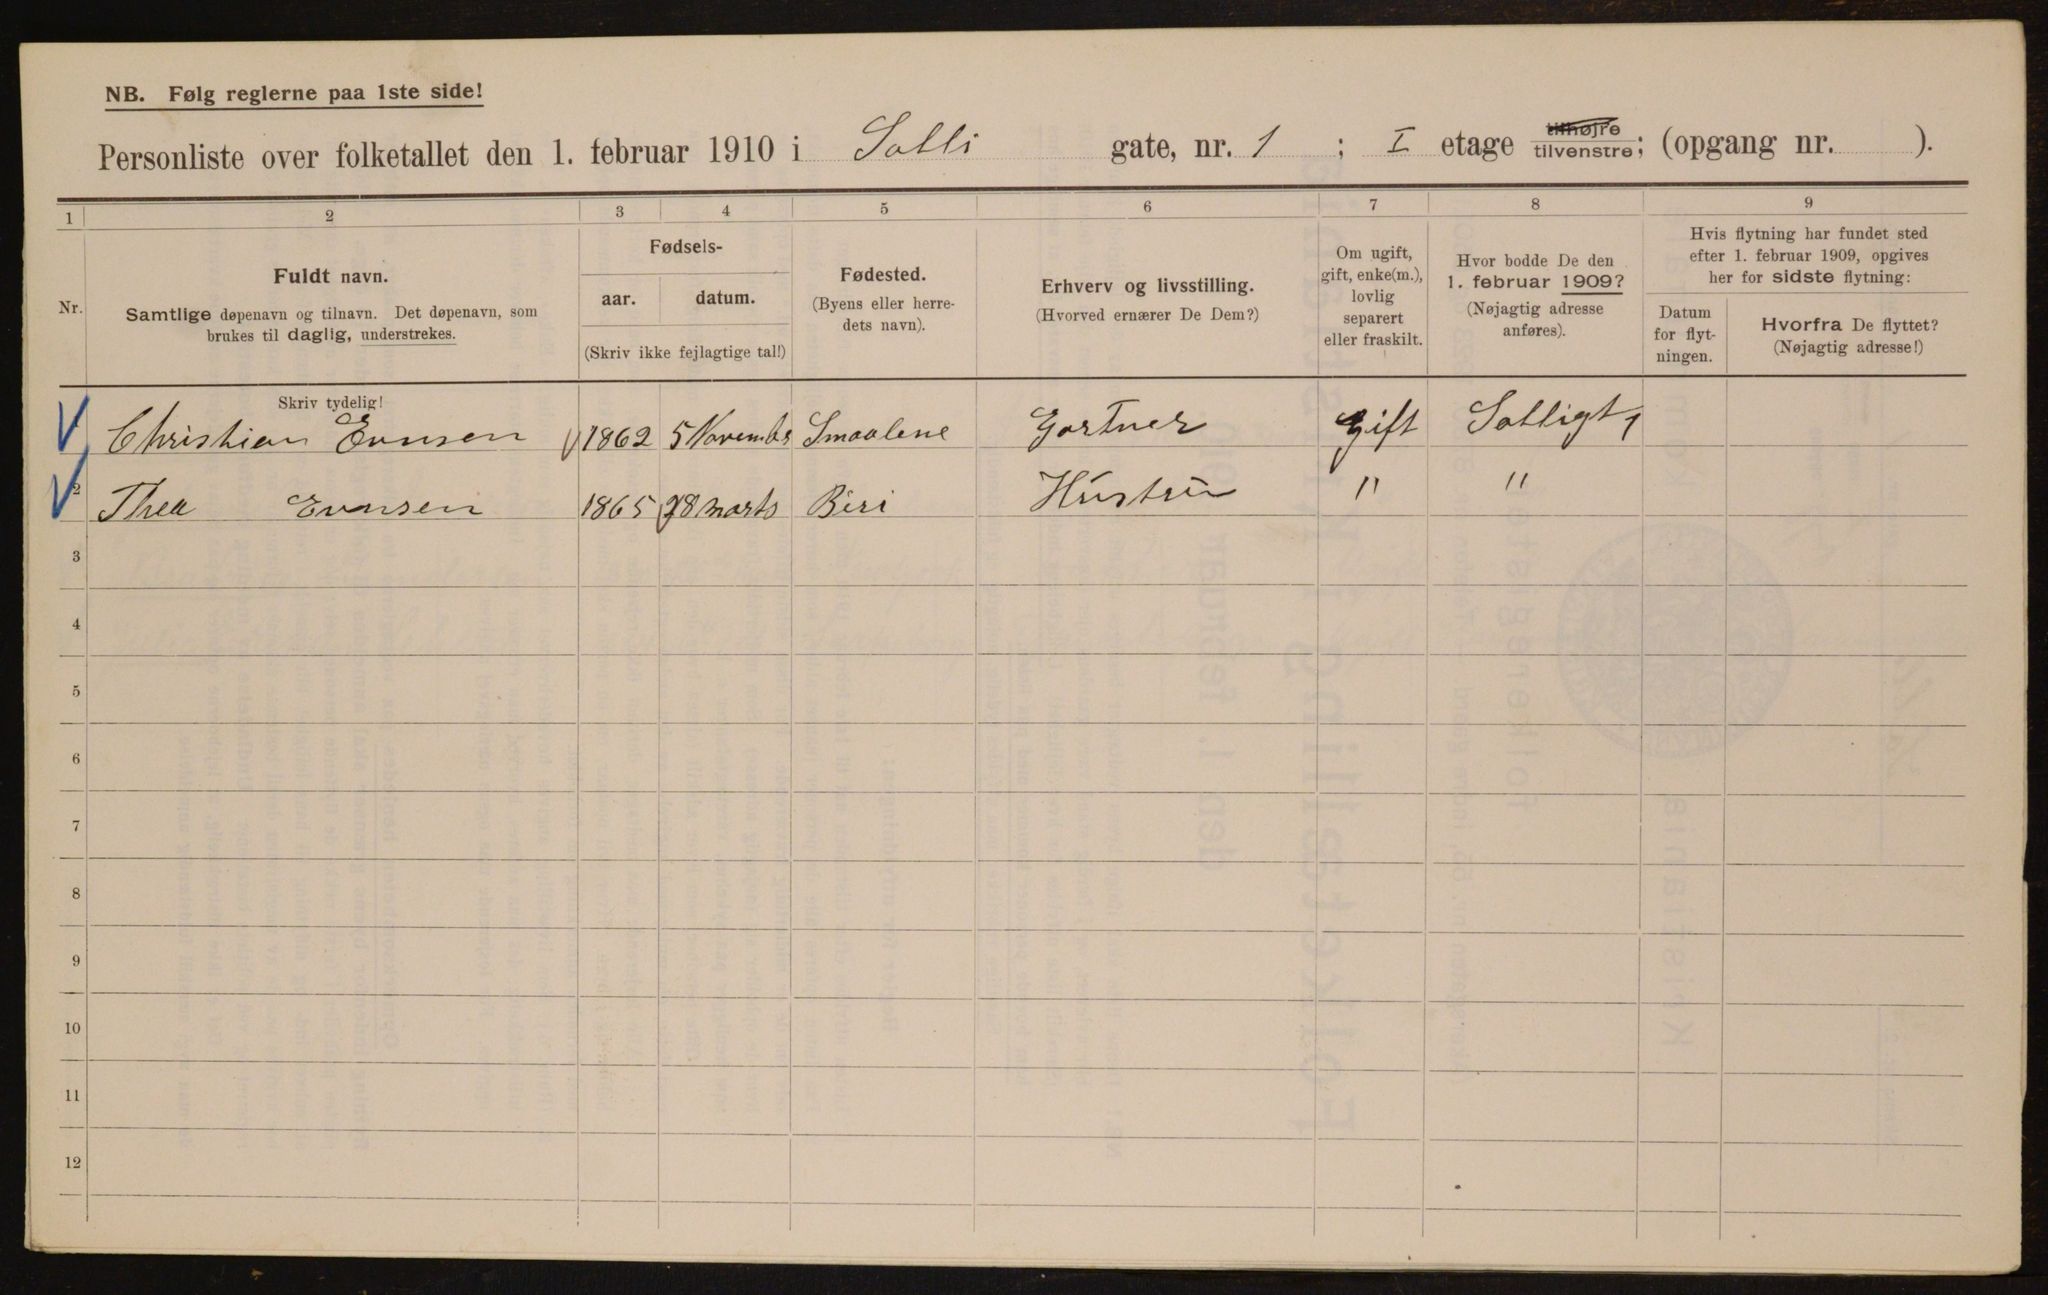 NB. Følg reglerne paa 1ste side!
Personliste over folketallet den 1. februar 1910 i Solli gate, nr. 1 ; I etage tilhøjre tilvenstre; (opgang nr. ).
1 2 3 4 5 6 7 8 9
Nr.
Fuldt navn.
Samtlige døpenavn og tilnavn. Det døpenavn, som
brukes til daglig, understrekes.
Fødsels-
aar. datum.
(Skriv ikke fejlagtige tal!)
Fødested.
(Byens eller herre-
dets navn).
Erhverv og livsstilling.
(Hvorved ernærer De Dem?)
Om ugift,
gift, enke(m.),
lovlig
separert
eller fraskilt.
Hvor bodde De den
1. februar 1909?
(Nøjagtig adresse
anføres).
Hvis flytning har fundet sted
efter 1. februar 1909, opgives
her for sidste flytning:
Datum
for flyt-
ningen.
Hvorfra De flyttet?
(Nøjagtig adresse!)
Skriv tydelig!
Christian Evnsen 1862 5 November Smaalene Gartner Gift Solligt 1
2 Thea Evnsen 1865 28 marts Biri Hustru " "
3
4
5
6
7
8
9
10
11
12